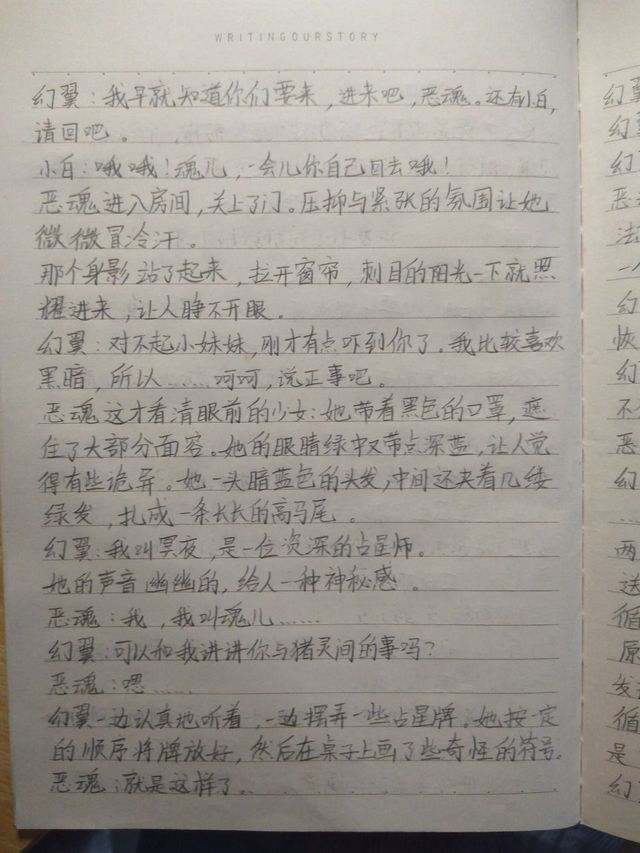 WRITINGOURSTORY
幻翼：我早就知道你们要来，进来吧，恶魂。还有小白，
请回吧。
小白：哦哦！魂儿，一会儿你自己回去哦！
恶魂进入房间，关上了门。压抑与紧张的氛围让她
微微冒冷汗。
那个身影站了起来，拉开窗帘，刺目的阳光一下就照
耀进来，让人睁不开眼。
幻翼：对不起小妹妹，刚才有点吓到你了。我比较喜欢
黑暗，所以……呵呵，说正事吧。
恶魂这才看清眼前的少女：她带着黑色的口罩，遮
住了大部分面容。她的眼睛绿中又带点深蓝，让人觉
得有些诡异。她一头暗蓝色的头发，中间还夹着几缕
绿发，扎成一条长长的高马尾。
幻翼：我叫冥夜，是一位资深的占星师。
她的声音幽幽的，给人一种神秘感。
恶魂：我，我叫魂儿……
幻翼：可以和我讲讲你与猪灵间的事吗？
恶魂：嗯……
幻翼一边认真地听着，一边摆弄一些占星牌。她按一定
的顺序将牌放好，然后在桌子上画了些奇怪的符号。
恶魂：就是这样了。
幻翼
幻
幻
恶
法
一
幻
恢
幻
不
恶
幻
……
两
送
循
原
发
循
是
幻